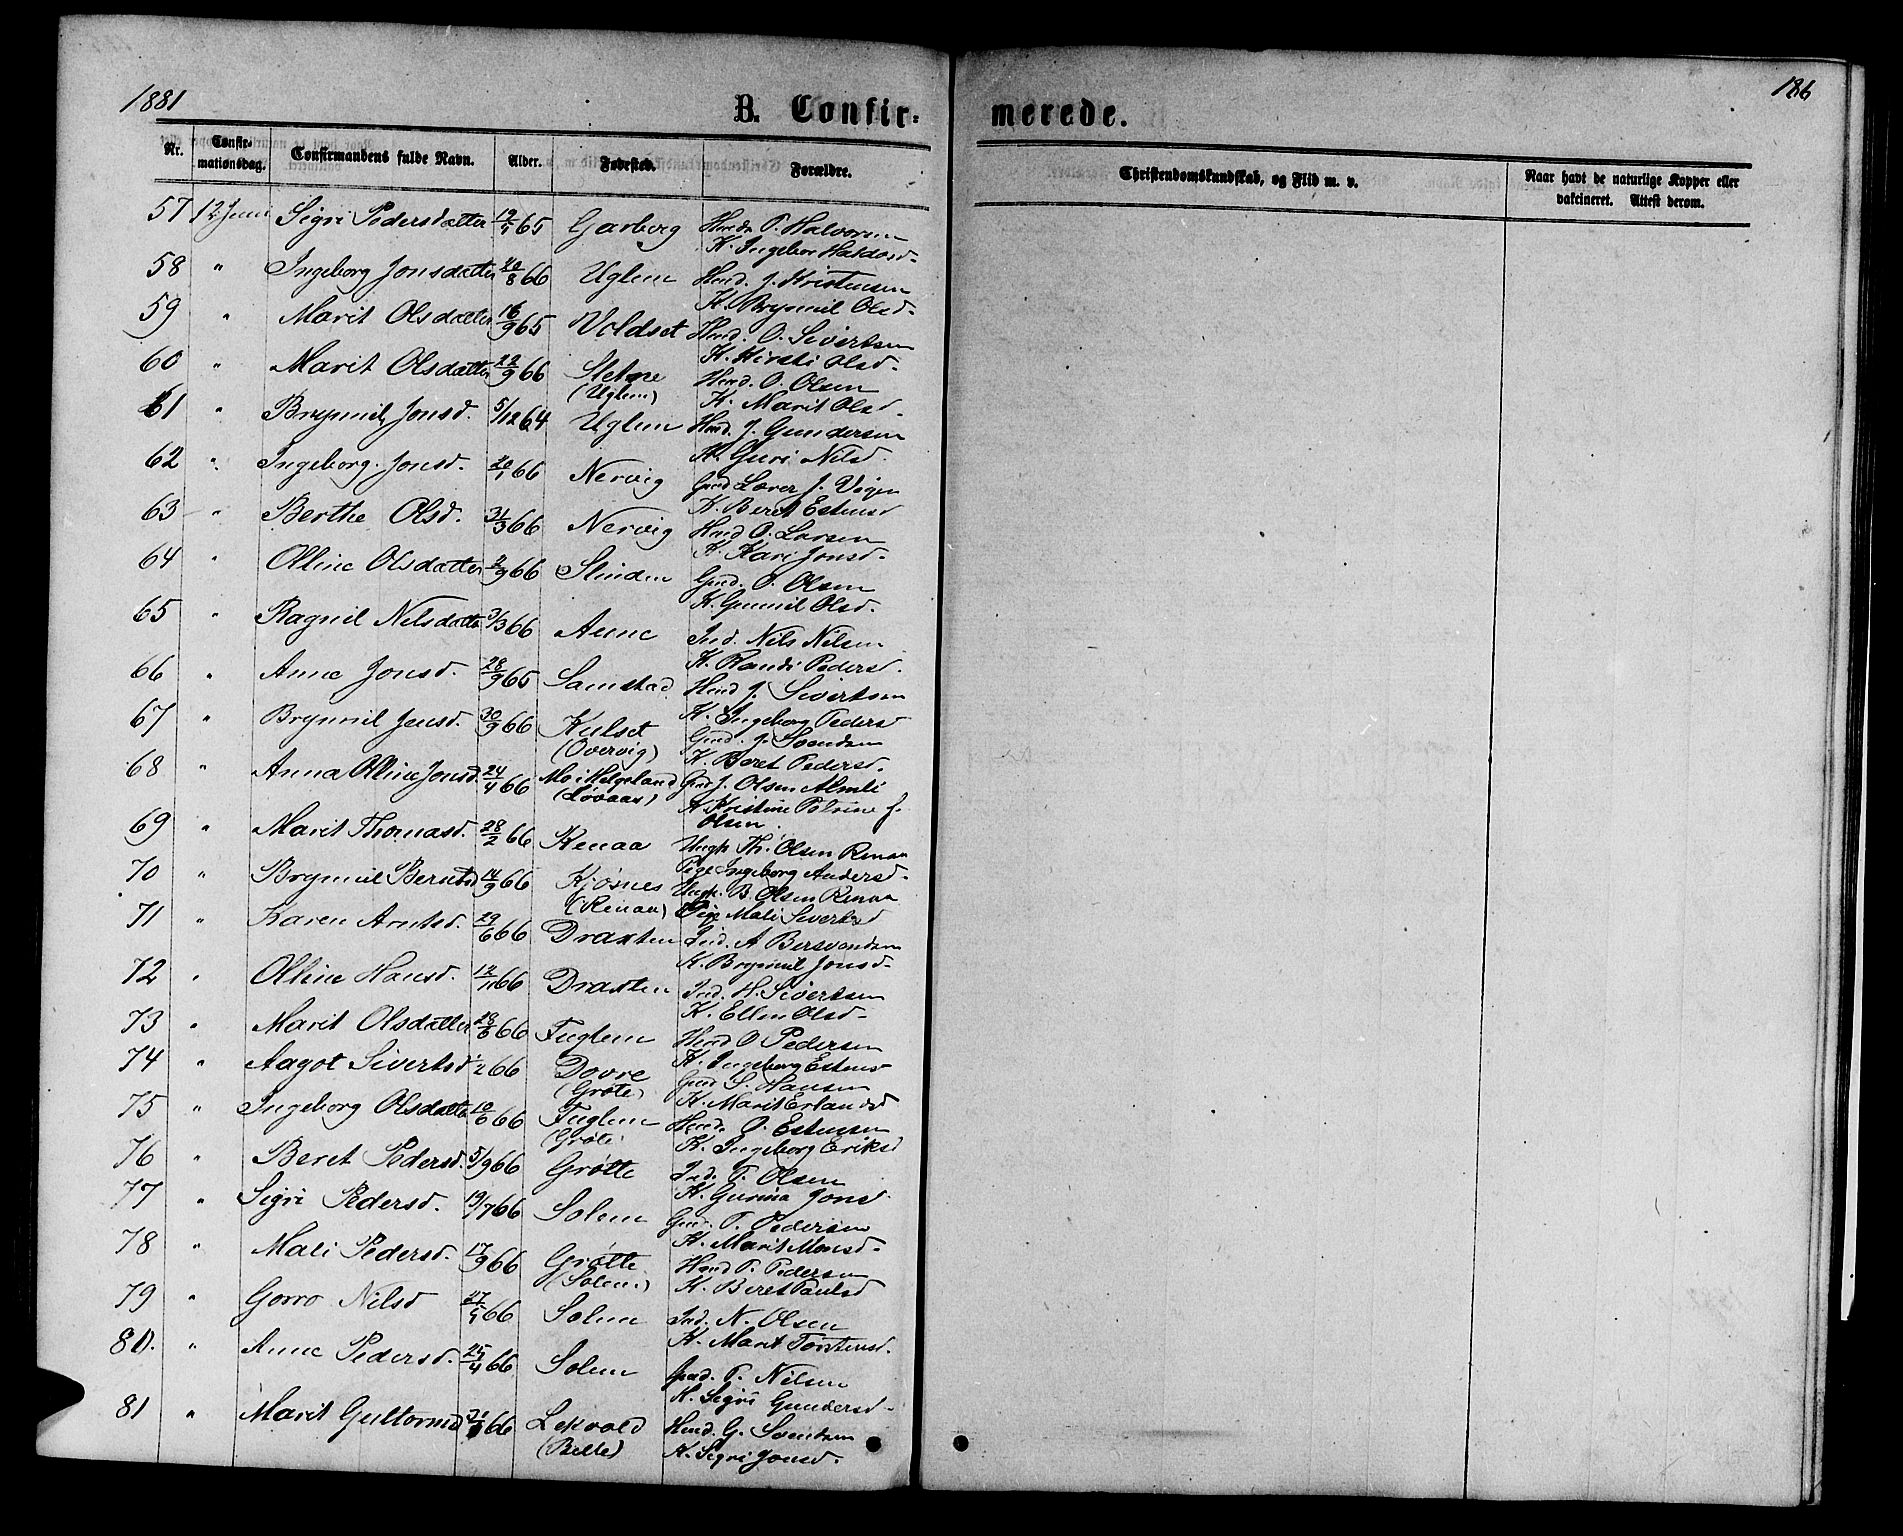 1881
B. Confirmerede.
186
Nr. Confirmationsdag. Confirmandens fulde Navn. Alder. Fødested. Forældre. Christendomskundskab, og Flid m. v. Naar havt de naturlige Kopper eller vakcineret. Attest derom.
57 12 Juni Sigri Pedersdatter 12/5 65 Garberg Husm. P. Halvorsen
K. Ingebor Haldosd.
58 " Ingeborg Jonsdatter /8 66 Uglem Husm. J. Kristensen
K. Brynnil Olsd.
59 " Marit Olsdatter 16/9 65 Voldset Husm. O. Sivertsen
K. Kirsti Olsd.
60 " Marit Olsdatter 22/9 66 Stetne
(Uglem) O. Olsen
K. Marit Olsd.
61 " Brynnil Jonsd. 5/12 64 Uglem J. Gundersen
K. Guri Nilsd.
62 " Ingeborg Jonsd. 20/1 66 Nervig Lærer J. Vigen
K. Beret Estensd
63 " Berthe Olsd. 31/3 66 Nervig O. Larsen
K. Kari Jonsd.
64 " Olline Olsdatter /9 66 Slinden O. Olsen
K. Gunnil Olsd.
65 " Ragnil Nilsdatter 3/3 66 Aune Nils Nilsen
K. Randi Pedersd.
66 " Anne Jonsd. 28/9 65 Samstad J. Sivertsen
K. Ingeborg Pedersd
67 " Brynnil Jensd. 30/9 66 Kulset
(Overvig) J. Svendsen
K. Beret Pedersd.
68 " Anna Olline Jonsd. 24/4 66 Mo i Helgeland
(Løvaas) J. Olsen Almli
K. Kristine Petrine J.
Olsen
69 " Marit Thomasd. 28/2 66 Renaa Ungk. Th. Olsen Renaa
Pige Ingeborg Andersd.
70 " Brynnil Berntsd 14/9 66 Kjøsnes
(Renaa) Ungk. B. Olsen Renaa
Pige Mali Sivertsd
71 " Karen Arntsd. 29/6 66 Draxten A Bersvendsen
K. Brynnil Jonsd.
72 " Olline Hansd. 12/11 66 Draxten H. Sivertsen
K. Ellen Olsd.
73 " Marit Olsdatter 28/8 66 Fuglem O Pedersen
K. Ingeborg Estensd
74 " Aagot Sivertsd 66 Dovre
(Grøte) S. Hansen
K. Marit Erlandsd
75 " Ingeborg Olsdatter 10/6 66 Fuglem
(Grøte) O. Estensen
K. Ingeborg Eriksd
76 " Beret Pedersd. 5/9 66 Grøtte P. Olsen
K. Gurina Jonsd
77 " Sigri Pedersd. 19/7 66 Solem P. Pedersen
K. Marit Monsd.
78 " Mali Pedersd. 17/9 66 Grøtte
(Solem) P. Pedersen
K. Beret Paulsd
79 " Gorro Nilsd 27/5 66 Solem N. Olsen
K. Marit Torstensd.
80. " Anne Pedersd. 25/4 66 Solem P. Nilsen
K. Sigri Gundersd.
81 " Marit Guttormsd 66 Lekvold
(Belle) G. Svendsen
K. Sigri Jonsd.